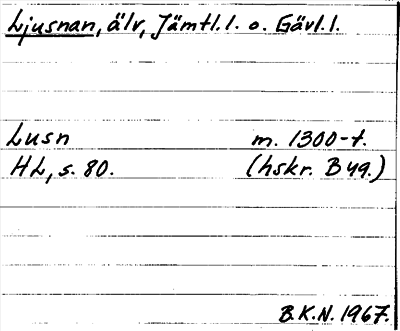 Ljusnan, älv, Jämtl.l. o. Gävl.l.
Lusn m. 1300-t.
HL, s. 80. (hskr. B yq.)
B.K.N. 1967.